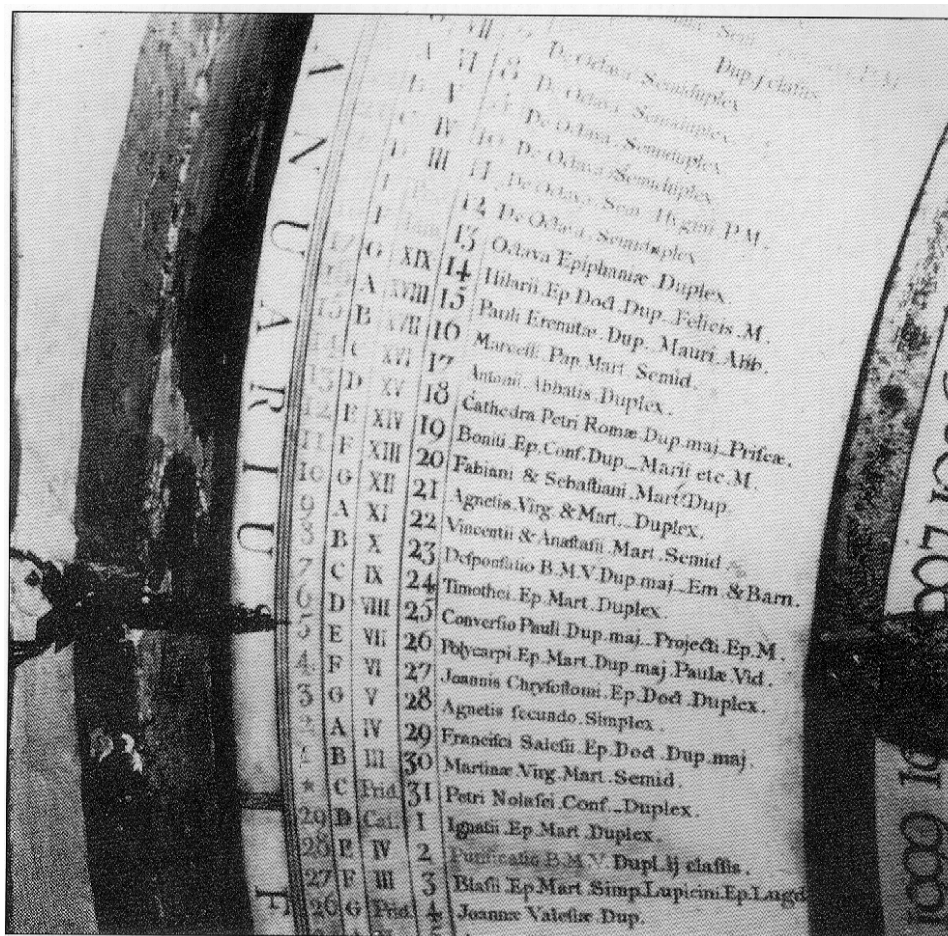 Dup. j claſſis.
VII De Octava Semiduplex
A VI 8 De Octava Semiduplex.
B V De Octava Semiduplex
C IV 10 De Octava Semiduplex
D III 11 De Octava Sem. Hygini P. M.
12 De Octava. Semiduplex
F 13 Octava Epiphaniæ Duplex.
G XIX 14 Hilarii. Ep. Doct. Dup. Felicis. M.
A XVIII 15 Pauli Eremitæ Dup. Mauri. Abb.
15 B XVII 16 Marcelli. Pap. Mart. Semid.
14 C XVI 17 Antonii. Abbatis. Duplex.
13 D XV 18 Cathedra Petri Romæ Dup. maj. Priſcæ.
12 E XIV 19 Boniti. Ep. Conf. Dup. Marii etc. M.
11 F XIII 20 Fabiani & Sebaſtiani. Mart. Dup.
10 G XII 21 Agnetis. Virg. & Mart. Duplex.
9 A XI 22 Vincentii & Anaſtaſii. Mart. Semid
8 B X 23 Deſponſatio B.M.V. Dup. maj. Em & Barn.
7 C IX 24 Timothei. Ep. Mart. Duplex.
6 D VIII 25 Converſio Pauli. Dup. maj. Projecti. Ep. M.
5 E VII 26 Polycarpi. Ep. Mart. Dup. maj. Paulæ. Vid.
4 F VI 27 Joannis Chryſoſtomi. Ep. Doct. Duplex.
3 G V 28 Agnetis ſecundo. Simplex.
2 A IV 29 Franciſci Saleſii. Ep. Doct. Dup. maj.
1 B III 30 Martinæ. Virg. Mart. Semid.
* C Prid. 31 Petri Nolaſci. Conf. Duplex.
29 D Cal. 1 Ignatii. Ep. Mart. Duplex.
28 E IV 2 Purificatio B.M.V. Dupl. ij claſſis.
27 F III 3 Blaſii. Ep. Mart. Simp. Lupicini. Ep. Lugd
26 G Prid. 4 Joannæ Valeſiæ. Dup.
ANUARIU
F